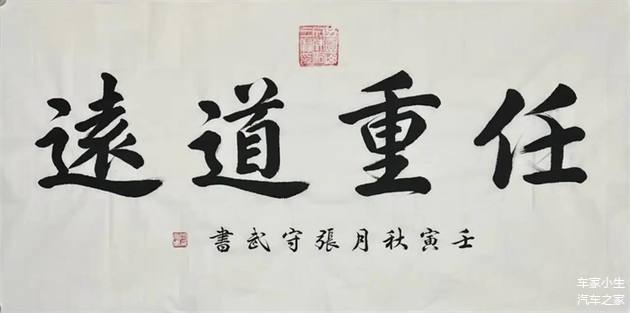 任重道遠
壬寅秋月張守武書
车家小生
汽车之家